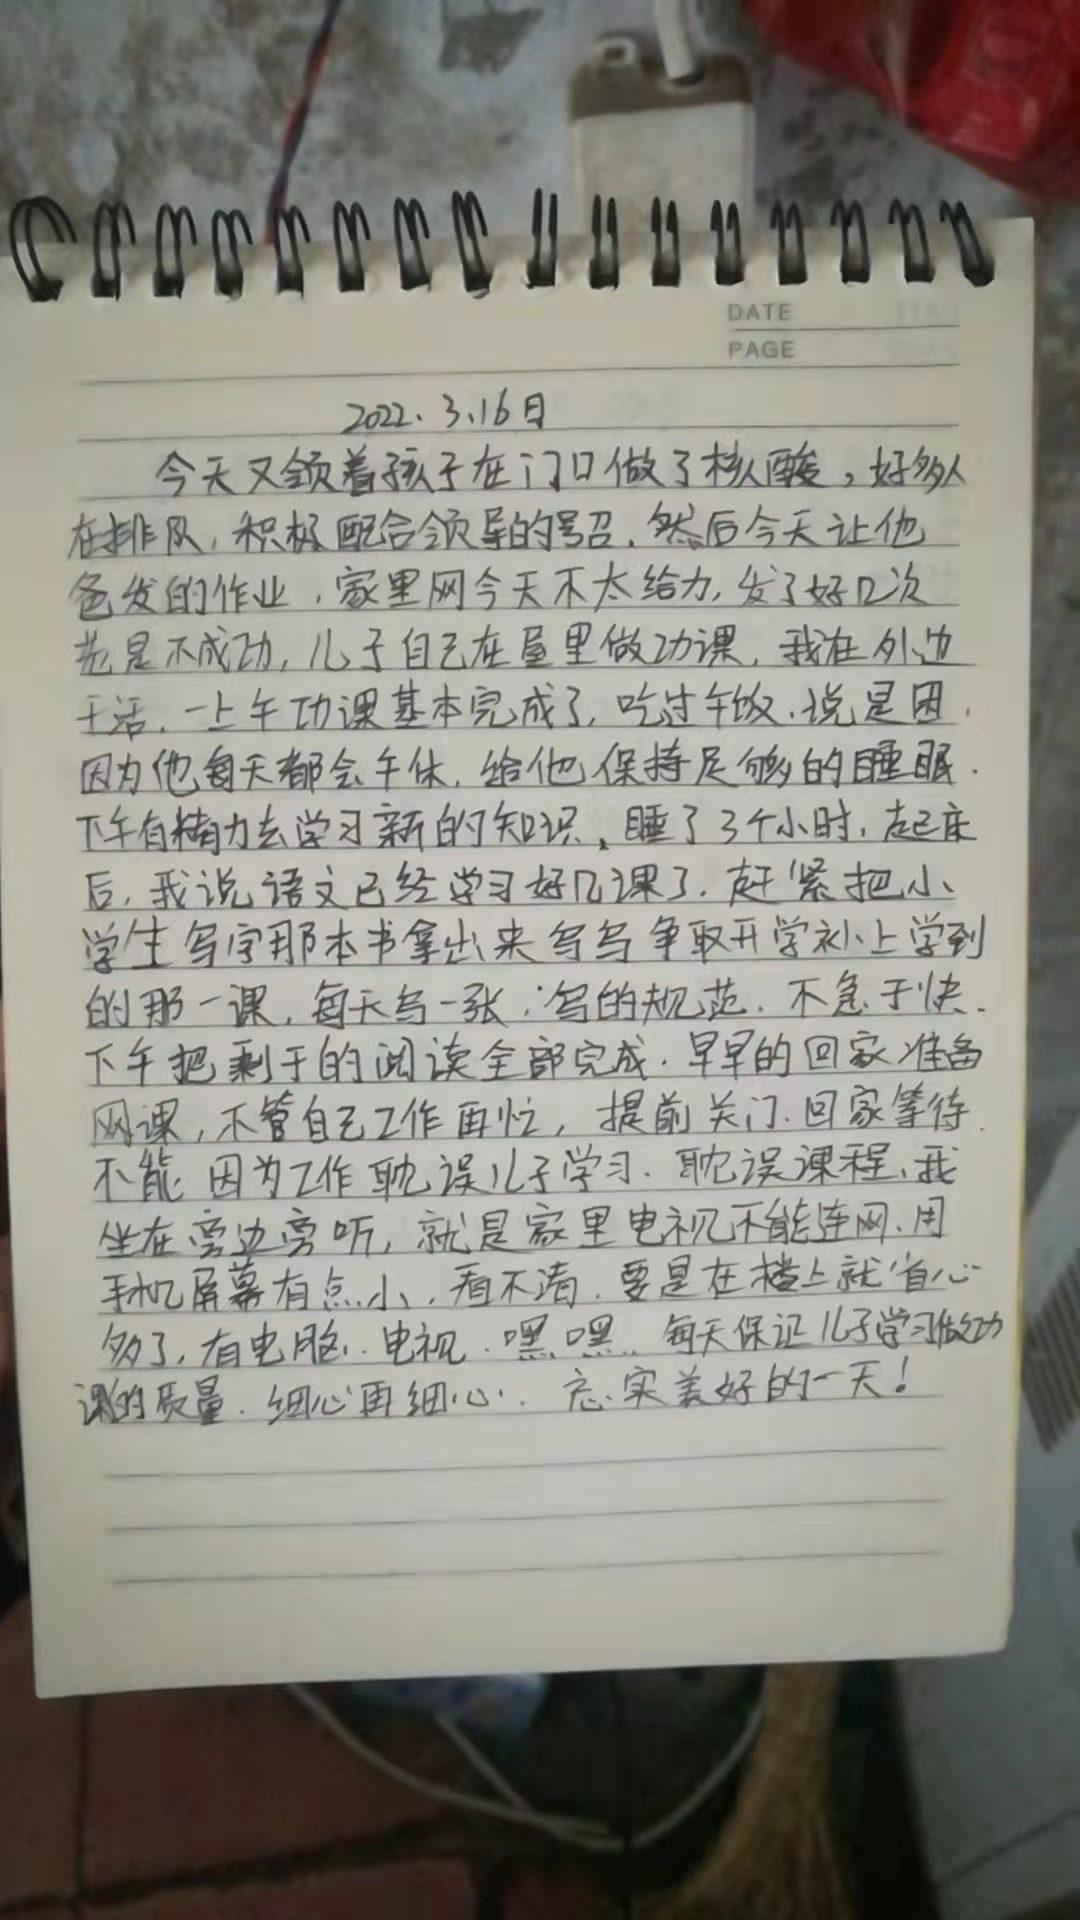 DATE
PAGE
2022.3.16日
今天又领着孩子在门口做了核酸,好多人
在排队,积极配合领导的号召,然后今天让他
爸发的作业,家里网今天不太给力,发了好几次
总是不成功,儿子自己在屋里做功课,我在外边
干活,一上午功课基本完成了,吃过午饭,说是困,
因为他每天都会午休,给他保持足够的睡眠.
下午有精力去学习新的知识,睡了3个小时,起床
后,我说语文已经学习好几课了,赶紧把小
学生写字那本书拿出来写写争取开学补上学到
的那一课,每天写一张,写的规范,不急于快.
下午把剩于的阅读全部完成.早早的回家准备
网课,不管自己工作再忙,提前关门.回家等待.
不能因为工作耽误儿子学习.耽误课程,我
坐在旁边旁听,就是家里电视不能连网,用
手机屏幕有点小,看不清.要是在楼上就省心
多了,有电脑.电视.嘿嘿,每天保证儿子学习做功
课的质量.细心再细心.充实美好的一天!